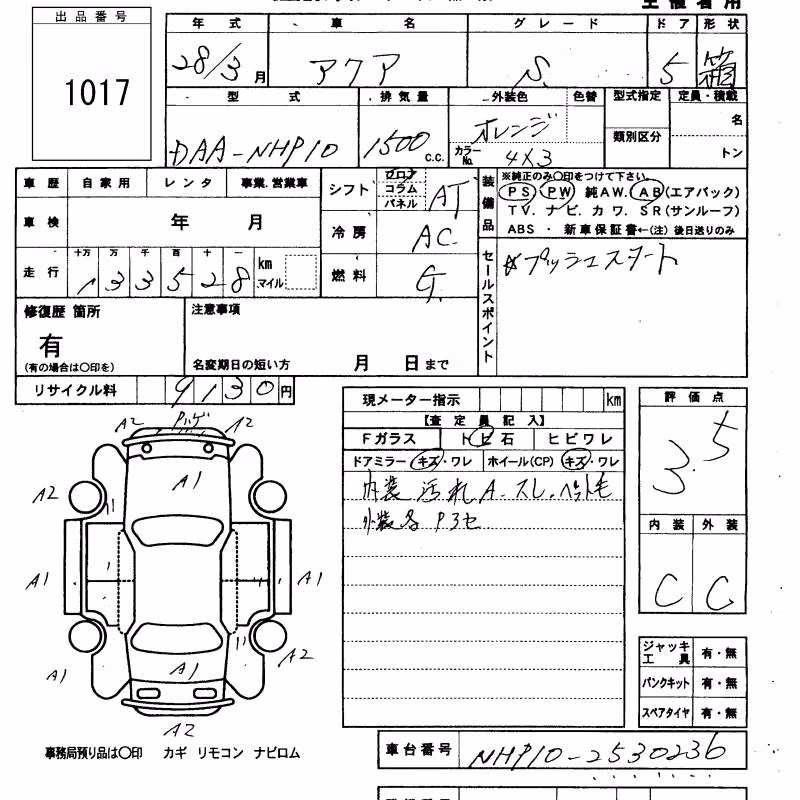 出品番号
1017
年式 車名 グレード ドア 形状
28/3月 アクア S. 5 箱
型式 排気量 外装色 色替 型式指定 定員・積載
DAA-NHP10 1500 c.c. オレンジ 類別区分 名
カラーNo. 4X3 トン
車歴 自家用 レンタ 事業.営業車
車検 年 月
走行 十万 万 千 百 十 一
133528 km マイル
シフト フロア コラム パネル AT
冷房 AC
燃料 G.
装備品
※純正のみ〇印をつけて下さい。
PS PW 純AW. AB(エアバック)
TV. ナビ. カワ. SR(サンルーフ)
ABS ・ 新車保証書←(注) 後日送りのみ
セールスポイント
プッシュスタート
修復歴 箇所
有
(有の場合は〇印を)
注意事項
名変期日の短い方 月 日まで
リサイクル料 9130円
現メーター指示 km
【査定員記入】
Fガラス トビ石 ヒビワレ
ドアミラー キズ・ワレ ホイール(CP) キズ・ワレ
内装 汚れ A.スレ.ペット毛
外装各 P3セ
評価点
3.5
内装 外装
C C
A2 A2
A1
A2
A1 A1
A1 A1 A2
A2
ジャッキ工具 有・無
パンクキット 有・無
スペアタイヤ 有・無
事務局預り品は〇印 カギ リモコン ナビロム
車台番号 NHP10-2530236